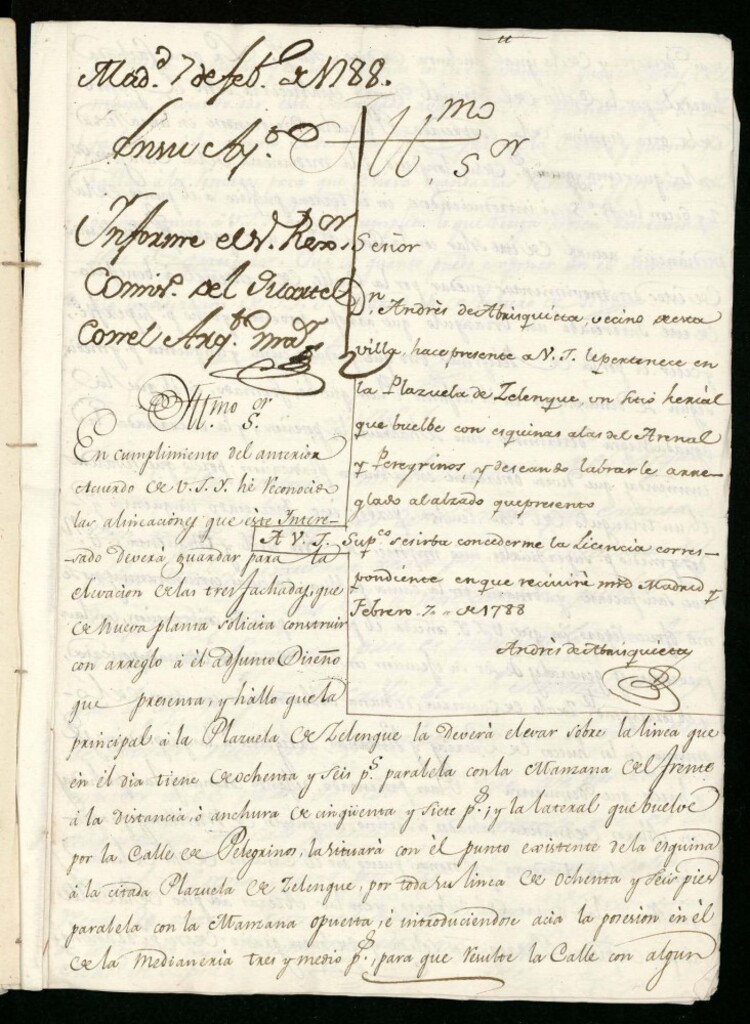 Mad.d 7 de feb.o de 1788.
En su Ay.to
Informe el S. Rexor.
Comis.o del Quartel
con el Arq.to may.r
Yll.mo S.or
Señor
Dn. Andrès de Abrisquieta vecino de esta
villa, hace presente a V. I. le pertenece en
la Plazuela de Zelenque, un sitio herial
que buelbe con esquinas a las del Arenal
y Peregrinos y deseando labrarle arre-
glado al alzado que presento
A V. I. Sup.co se sirba concederme la Licencia corres-
pondiente en que recivirè mrd Madrid y
Febrero 7 de 1788
Andrès de Abrisquieta
Yllmo S.or
En cumplimiento del anterior
Acuerdo de V. S. Y. hè reconocido
las alineaciones que èste Intere-
sado deverà guardar para la
elevacion de las tres fachadas, que
de nueva planta solicita construir
con arreglo à èl adjunto Diseño
que presenta, y hallo que la
principal à la Plazuela de Zelenque la deverà elevar sobre la linea que
en èl dia tiene de ochenta y seis p.s parabela con la Manzana del frente
à la distancia, ò anchura de cinqüenta y siete p.s; y la lateral que buelve
por la Calle de Pelegrinos, la situarà con èl punto existente de la esquina
à la citada Plazuela de Zelenque, por toda su linea de ochenta y seis pies
parabela con la Manzana opuesta, è introduciendose acia la posesion en èl
de la medianeria tres y medio p.s, para que resulte la Calle con algun